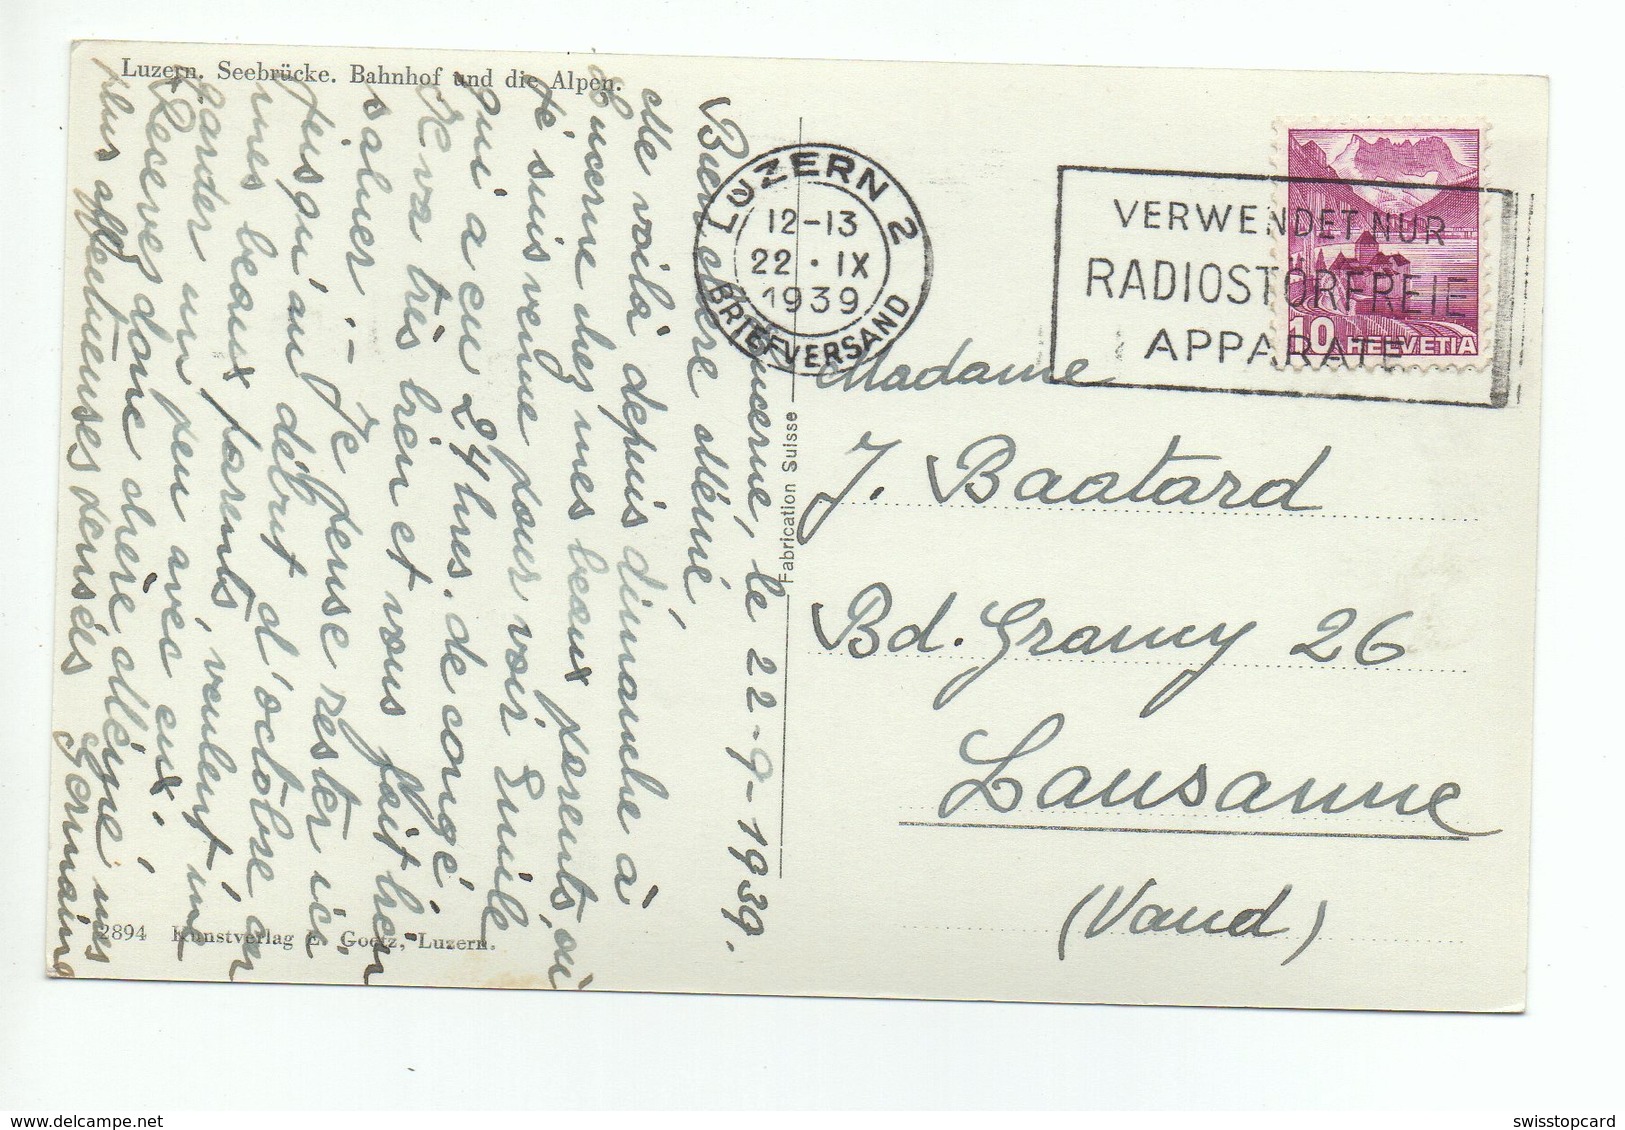 Luzern. Seebrücke. Bahnhof und die Alpen.
Lucerne, le 22-9-1939.
Bien chère Mémé,
Me voilà depuis dimanche à
Lucerne chez mes beaux parents, où
je suis venue pour voir Emile
qui a eu 24 hres. de congé.
Il va très bien et vous fait bien
saluer.- Je pense rester ici
jusqu'au début d'octobre car
mes beaux parents, veulent me
garder un peu avec eux.
Recevez donc chère Mémé mes
plus affectueuses pensées
Germaine
2894 Kunstverlag E. Goetz, Luzern.
Fabrication Suisse
LUZERN 2
12-13
22·IX
1939
BRIEFVERSAND
VERWENDET NUR
RADIOSTÖRFREIE
APPARATE
10 HELVETIA
Madame
J. Baatard
Bd. Grancy 26
Lausanne
(Vaud)
swisstopcard